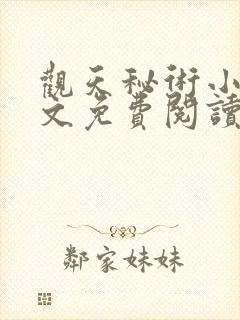 觀天秘術小
文免費閱讀
鄰家妹妹